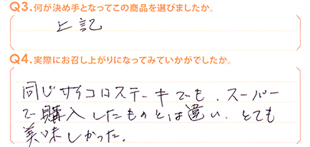 Q3.何が決め手となってこの商品を選びましたか。
上記
Q4.実際にお召し上がりになってみていかがでしたか。
同じサイコロステーキでも、スーパー
で購入したものとは違い、とても
美味しかった。